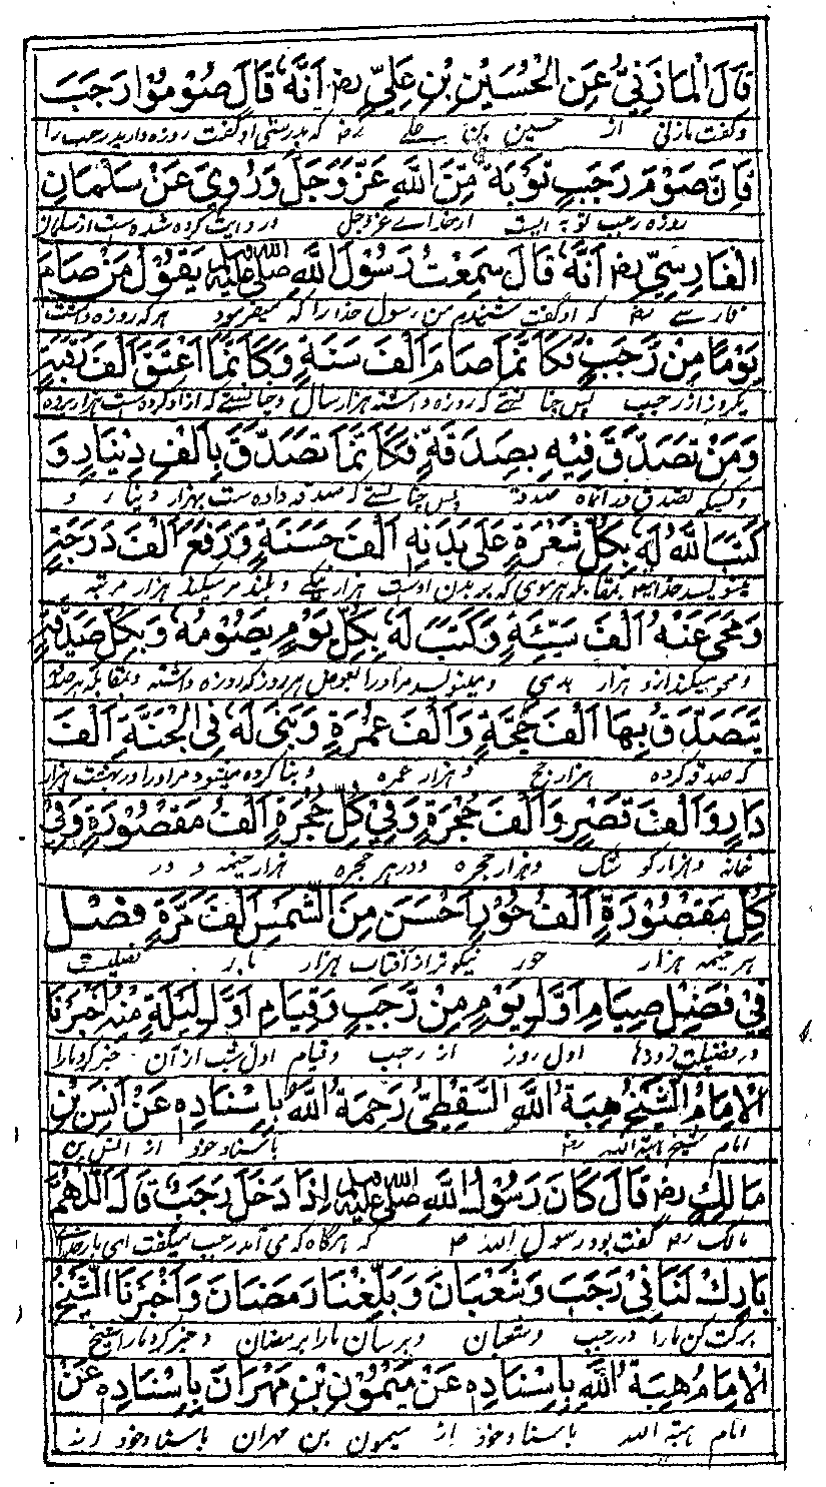 قَالَ الْمَازَنِيُّ عَنِ الْحُسَيْنِ بْنِ عَلِيٍّ رض اَنَّهٗ قَالَ صُوْمُوْا رَجَبَ
وگفت مازنی از حسین بن علی رض که بدرستی او گفت روزه دارید رجب را
فَاِنَّ صَوْمَ رَجَبٍ تَوْبَةٌ مِّنَ اللّٰهِ عَزَّ وَجَلَّ وَرُوِيَ عَنْ سَلْمَانَ
روزه رجب توبه است از خداے عزوجل و روایت کرده شده است از سلمان
الْفَارِسِيِّ رض اَنَّهٗ قَالَ سَمِعْتُ رَسُوْلَ اللّٰهِ صلى الله عليه يَقُوْلُ مَنْ صَامَ
فارسے رض که او گفت شنیدم من رسول خدا را که میفرمود هر که روزه داشت
يَوْمًا مِنْ رَّجَبٍ فَكَاَنَّمَا صَامَ اَلْفَ سَنَةٍ وَكَاَنَّمَا اَعْتَقَ اَلْفَ رَقَبَةٍ
یکروز از رجب پس چنانستے که روزه داشته هزار سال وچنانستے که آزاد کرده است هزار برده
وَمَنْ تَصَدَّقَ فِيْهِ بِصِدَقَةٍ فَكَاَنَّمَا تَصَدَّقَ بِاَلْفِ دِيْنَارٍ وَ
وکسیکه تصدق در آنماه صدقه پس چنانستے که صدقه داده است بهزار دینار و
كَتَبَ اللّٰهُ لَهٗ بِكُلِّ شَعْرَةٍ عَلٰى بَدَنِهٖ اَلْفَ حَسَنَةٍ وَرَفَعَ اَلْفَ دَرَجَةٍ
مینویسد خدا بمقابله هر موی که بر بدن اوست هزار نیکے و بلند میکند هزار مرتبه
وَمَحٰى عَنْهُ اَلْفَ سَيِّئَةٍ وَكَتَبَ لَهٗ بِكُلِّ يَوْمٍ يَصُوْمُهٗ وَبِكُلِّ صَدَقَةٍ
ومحو میکند ازو هزار بدی ومینویسد مر او را بعوض هر روز که روزه داشته وبمقابله هر صدقه
يَّتَصَدَّقُ بِهَا اَلْفَ حَجَّةٍ وَاَلْفَ عُمْرَةٍ وَبَنٰى لَهٗ فِى الْجَنَّةِ اَلْفَ
که صدقه کرده هزار حج و هزار عمره وبنا کرده میشود مر او را در بهشت هزار
دَارٍ وَاَلْفَ قَصْرٍ وَاَلْفَ حُجْرَةٍ وَفِيْ كُلِّ حُجْرَةٍ اَلْفُ مَقْصُوْرَةٍ وَفِيْ
خانه وهزار کوشک وهزار حجره ودر هر حجره هزار خیمه و در
كُلِّ مَقْصُوْرَةٍ اَلْفُ حُوْرٍ اَحْسَنَ مِنَ الشَّمْسِ اَلْفَ مَرَّةٍ فَصْل
هر خیمه هزار حور نیکوتر از آفتاب هزار بار
فِيْ فَضْلِ صِيَامِ اَوَّلِ يَوْمٍ مِنْ رَّجَبٍ وَقِيَامِ اَوَّلِ لَيْلَةٍ مِنْهُ اَخْبَرَنَا
در فضیلت روزه اول روز از رجب وقیام اول شب از آن خبر کرد ما را
الْاِمَامُ الشَّيْخُ هِبَةُ اللّٰهِ السَّقَطِيُّ رَحِمَهُ اللّٰهُ بِاِسْنَادِهٖ عَنْ اَنَسِ بْنِ
امام شیخ هبة الله رض باسناد خود از انس بن
مَالِكٍ رض قَالَ كَانَ رَسُوْلُ اللّٰهِ صلى الله عليه اِذَا دَخَلَ رَجَبٌ قَالَ اَللّٰهُمَّ
مالک رض گفت بود رسول الله ص که هرگاه که می آمد رجب میگفت ای بار خدای
بَارِكْ لَنَا فِيْ رَجَبَ وَشَعْبَانَ وَبَلِّغْنَا رَمَضَانَ وَاَخْبَرَنَا الشَّيْخُ
برکت کن ما را در رجب وشعبان وبرسان ما را برمضان وخبر کرد ما را شیخ
الْاِمَامُ هِبَةُ اللّٰهِ بِاِسْنَادِهٖ عَنْ مَيْمُوْنِ بْنِ مَهْرَانَ بِاِسْنَادِهٖ عَنْ
امام هبة الله باسناد خود از میمون بن مهران باسناد خود از